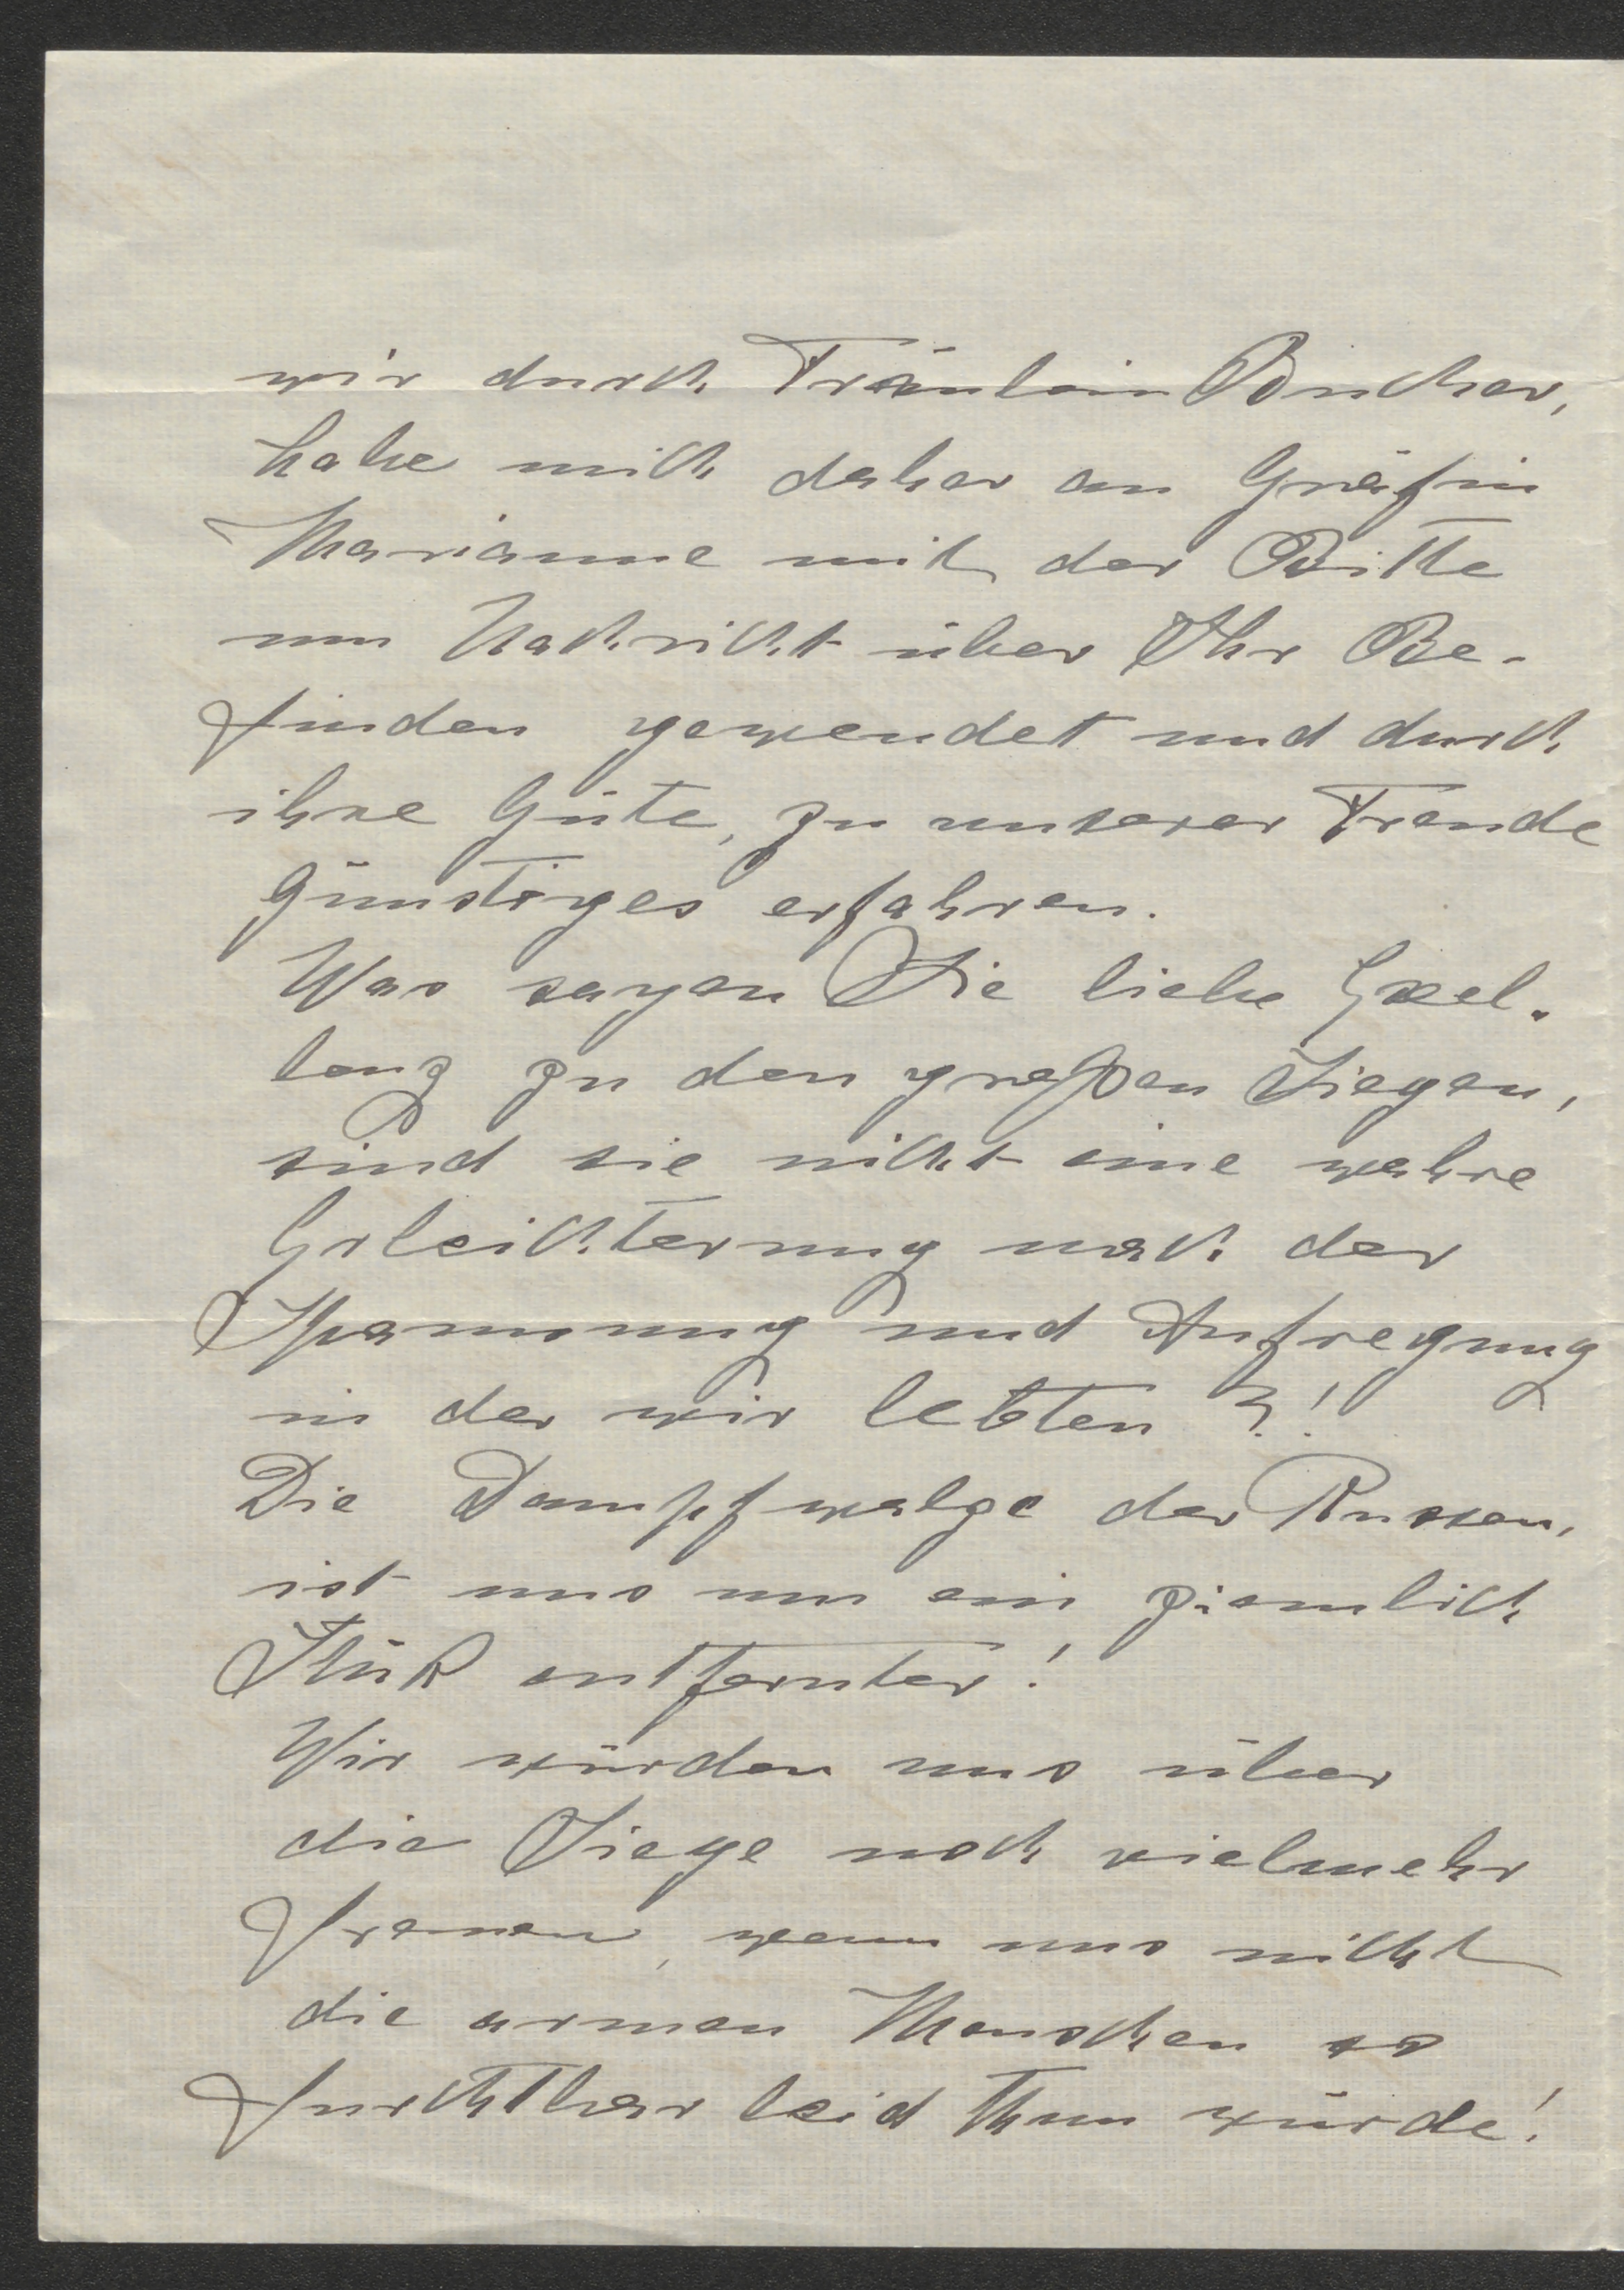 wir durch Fräulein Bucher,
habe mich daher an Gräfin
Marianne mit der Bitte
um Nachricht über Ihr Be-
finden gewendet und durch
ihre Güte, zu unserer Freude
günstiges erfahren.
Was sagen Sie liebe Exel-
lenz zu den großen Siegen,
sind sie nicht eine wahre
Erleichterung nach der
Spannung und Aufregung
in der wir lebten?!
Die Dampfwalze der Russen,
ist uns um ein ziemlich
Stück entfernter!
Wir würden uns über
die Siege noch vielmehr
freuen, wenn uns nicht
die armen Menschen so
furchtbar leid thun würde!